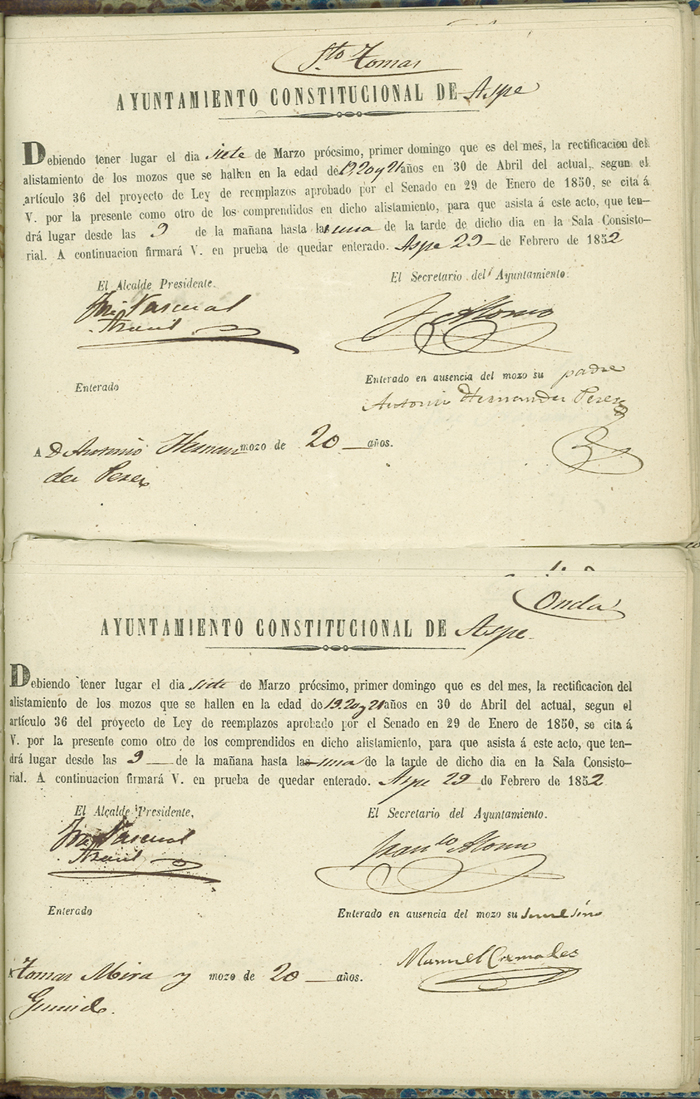 Sto Tomas
AYUNTAMIENTO CONSTITUCIONAL DE Aspe
Debiendo tener lugar el dia siete de Marzo prócsimo, primer domingo que es del mes, la rectificacion del
alistamiento de los mozos que se hallen en la edad de 19, 20 y 21 años en 30 de Abril del actual, segun el
artículo 36 del proyecto de Ley de reemplazos aprobado por el Senado en 29 de Enero de 1850, se cita á
V. por la presente como otro de los comprendidos en dicho alistamiento, para que asista á este acto, que ten-
drá lugar desde las 9 de la mañana hasta las una de la tarde de dicho dia en la Sala Consisto-
rial. A continuacion firmará V. en prueba de quedar enterado. Aspe 29 de Febrero de 1852
El Alcalde Presidente.
El Secretario del Ayuntamiento.
Pascual
Alonso
Enterado
Enterado en ausencia del mozo su padre
Antonio Hernandez Perez
A D Antonio Hernan mozo de 20 años.
dez Perez
Onda
AYUNTAMIENTO CONSTITUCIONAL DE Aspe
Debiendo tener lugar el dia siete de Marzo prócsimo, primer domingo que es del mes, la rectificacion del
alistamiento de los mozos que se hallen en la edad de 19, 20 y 21 años en 30 de Abril del actual, segun el
artículo 36 del proyecto de Ley de reemplazos aprobado por el Senado en 29 de Enero de 1850, se cita á
V. por la presente como otro de los comprendidos en dicho alistamiento, para que asista á este acto, que ten-
drá lugar desde las 9 de la mañana hasta las una de la tarde de dicho dia en la Sala Consisto-
rial. A continuacion firmará V. en prueba de quedar enterado. Aspe 29 de Febrero de 1852
El Alcalde Presidente,
El Secretario del Ayuntamiento.
Pascual
Franco Alonso
Enterado
Enterado en ausencia del mozo su
Manuel Cremades
A Tomas Mira y mozo de 20 años.